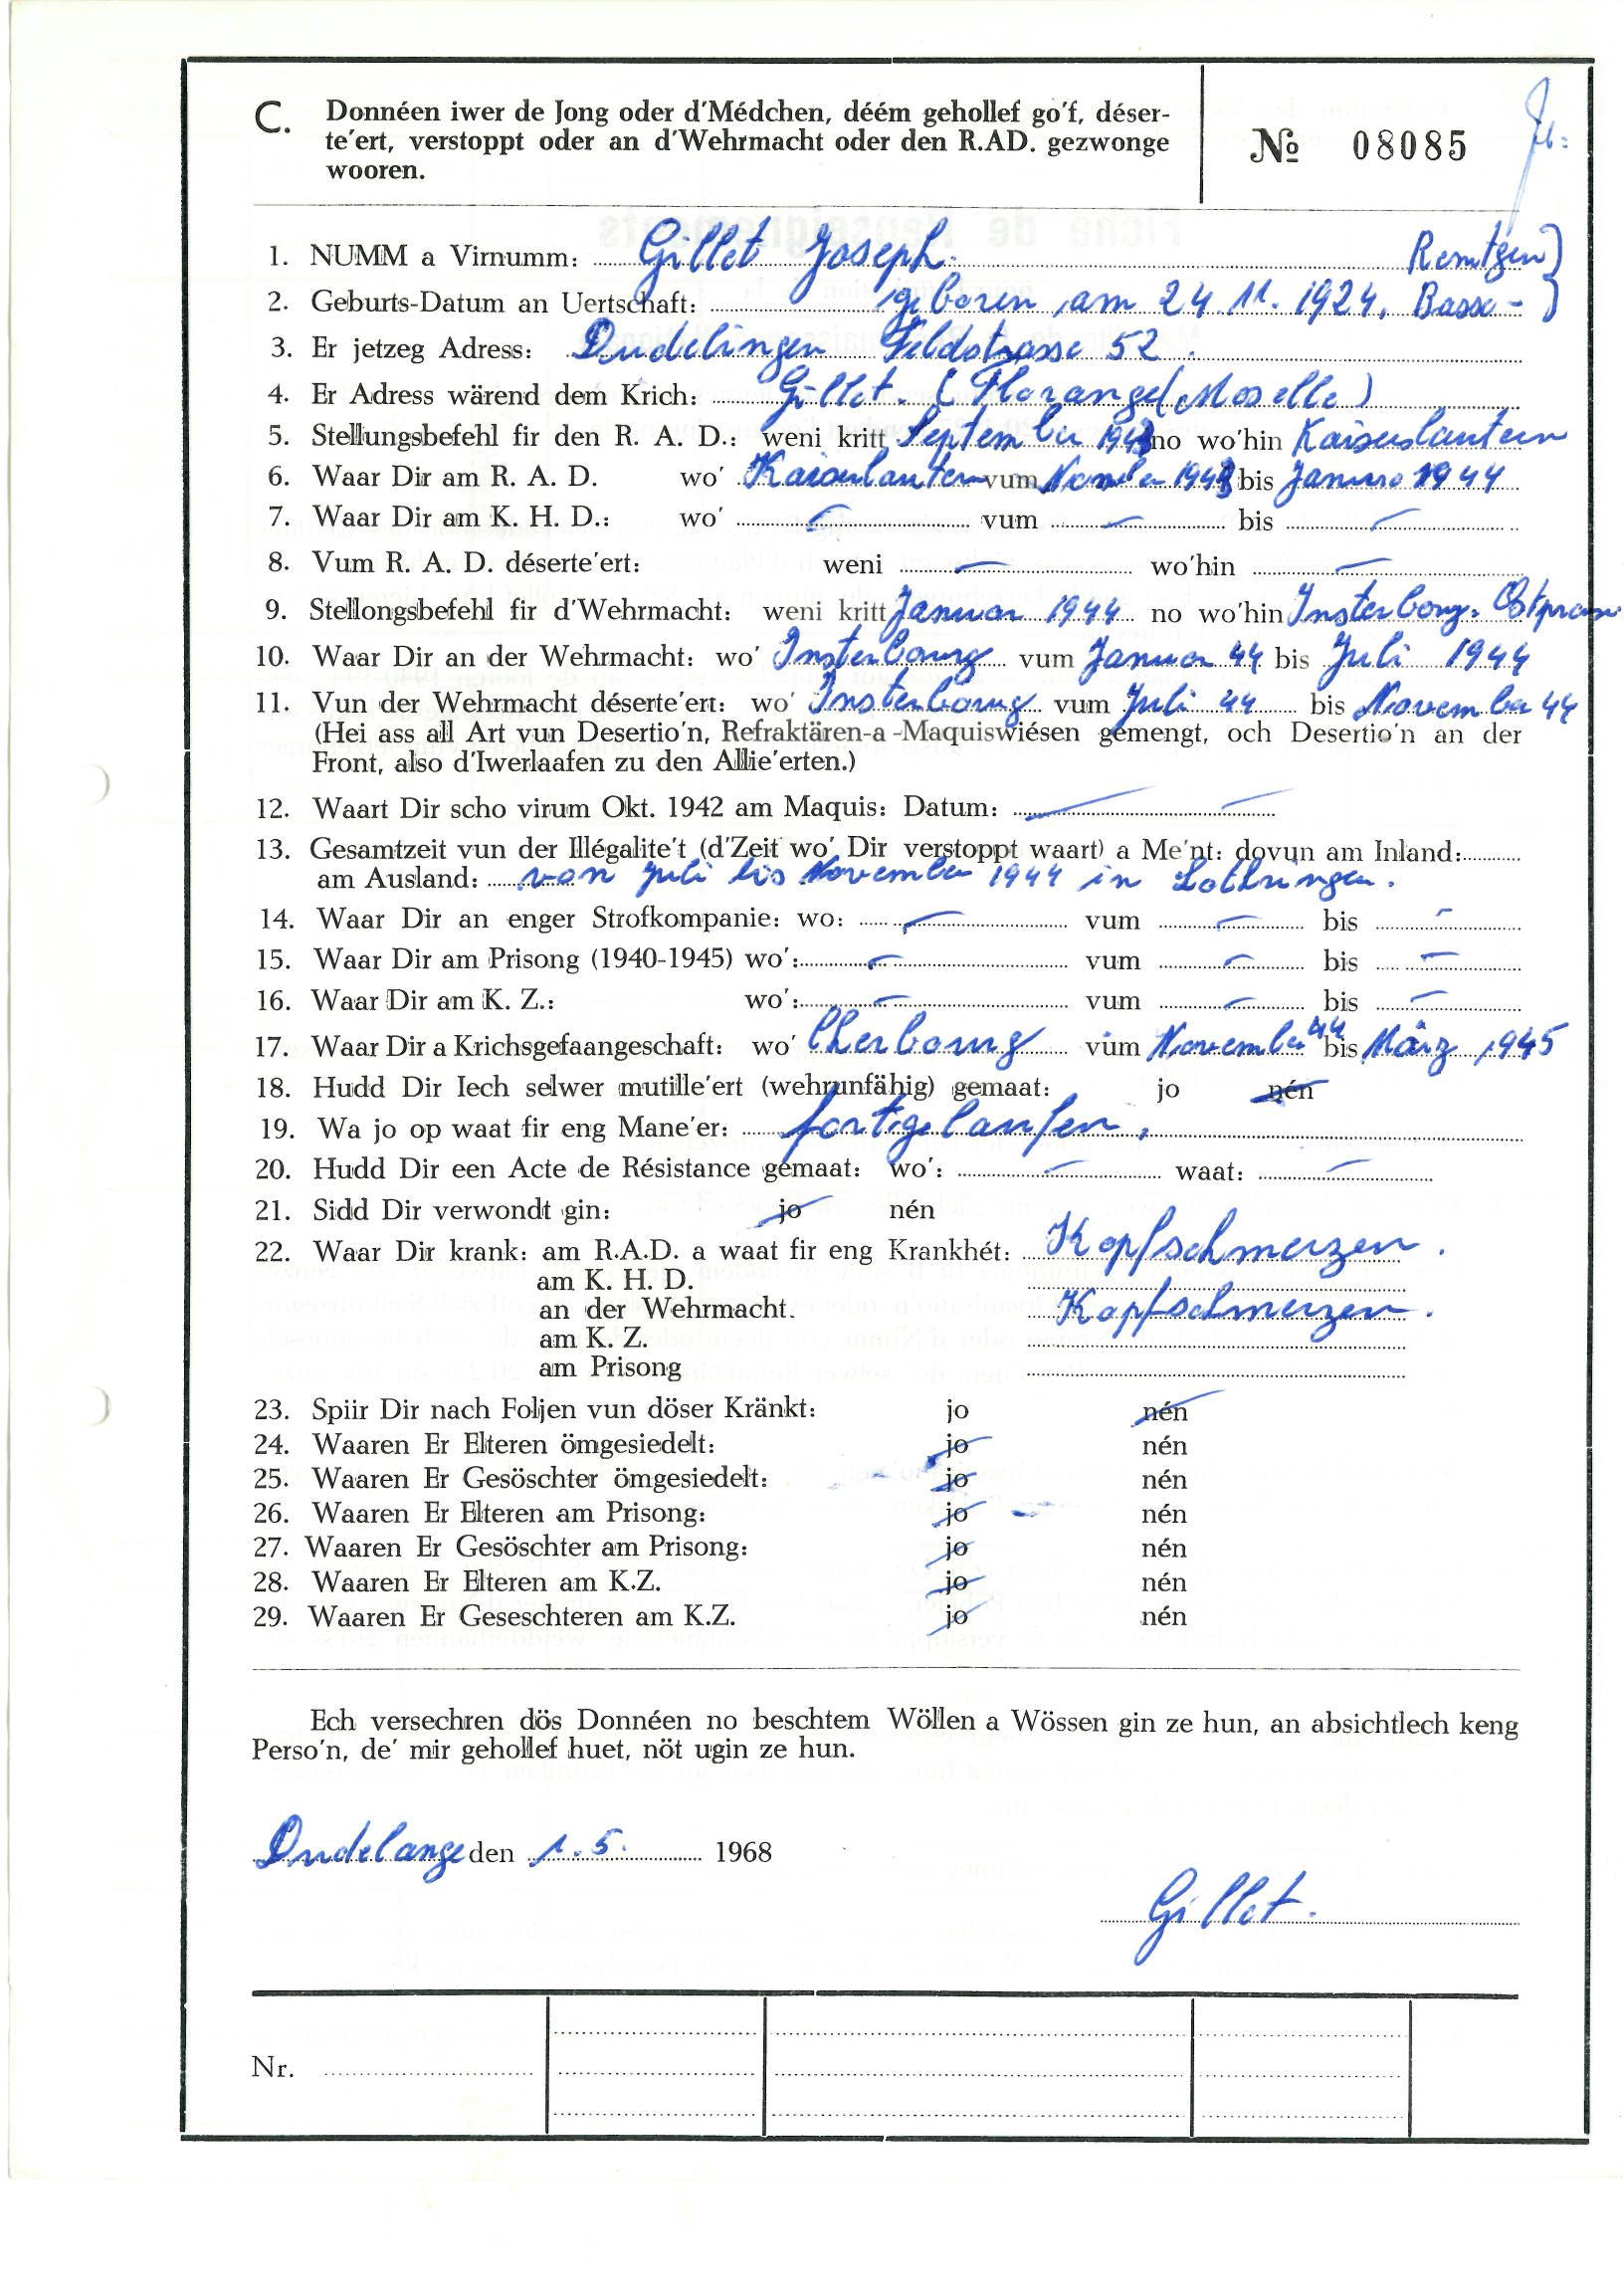 C. Donnéen iwer de Jong oder d'Médchen, déém gehollef go'f, déser-
te'ert, verstoppt oder an d'Wehrmacht oder den R.AD. gezwonge
wooren.
№ 08085
1. NUMM a Virnumm: Gillet Joseph.
2. Geburts-Datum an Uertschaft: geboren am 24.11.1924. Basse-Rentgen
3. Er jetzeg Adress: Dudelingen Feldstrasse 52.
4. Er Adress wärend dem Krich: Gillet. (Florange (Moselle)
5. Stellungsbefehl fir den R. A. D.: weni kritt September 1943 no wo'hin Kaiserslautern
6. Waar Dir am R. A. D. wo' Kaiserlautern vum November 1943 bis Januar 1944
7. Waar Dir am K. H. D.: wo' — vum — bis —
8. Vum R. A. D. déserte'ert: weni — wo'hin —
9. Stellongsbefehl fir d'Wehrmacht: weni kritt Januar 1944 no wo'hin Insterbourg. Ostpreus
10. Waar Dir an der Wehrmacht: wo' Insterbourg vum Januar 44 bis Juli 1944
11. Vun der Wehrmacht déserte'ert: wo' Insterbourg vum Juli 44 bis November 44
(Hei ass all Art vun Desertio'n, Refraktären-a -Maquiswiésen gemengt, och Desertio'n an der
Front, also d'Iwerlaafen zu den Allie'erten.)
12. Waart Dir scho virum Okt. 1942 am Maquis: Datum: — —
13. Gesamtzeit vun der Illégalite't (d'Zeit wo' Dir verstoppt waart) a Me'nt: dovun am Inland:
am Ausland: von Juli bis November 1944 in Lothringen.
14. Waar Dir an enger Strofkompanie: wo: — vum — bis —
15. Waar Dir am Prisong (1940-1945) wo': — vum — bis —
16. Waar Dir am K. Z.: wo': — vum — bis —
17. Waar Dir a Krichsgefaangeschaft: wo' Cherbourg vum November 44 bis März 1945
18. Hudd Dir Iech selwer mutille'ert (wehrunfähig) gemaat: jo nén
19. Wa jo op waat fir eng Mane'er: fortgelaufen.
20. Hudd Dir een Acte de Résistance gemaat: wo': — waat: —
21. Sidd Dir verwondt gin: jo nén
22. Waar Dir krank: am R.A.D. a waat fir eng Krankhét: Kopfschmerzen.
am K. H. D.
an der Wehrmacht. Kopfschmerzen.
am K. Z.
am Prisong
23. Spiir Dir nach Foljen vun döser Kränkt: jo nén
24. Waaren Er Elteren ömgesiedelt: jo nén
25. Waaren Er Gesöschter ömgesiedelt: jo nén
26. Waaren Er Elteren am Prisong: jo nén
27. Waaren Er Gesöschter am Prisong: jo nén
28. Waaren Er Elteren am K.Z. jo nén
29. Waaren Er Geseschteren am K.Z. jo nén
Ech versechren dös Donnéen no beschtem Wöllen a Wössen gin ze hun, an absichtlech keng
Perso'n, de' mir gehollef huet, nöt ugin ze hun.
Dudelange den 1.5. 1968
Gillet.
Nr.